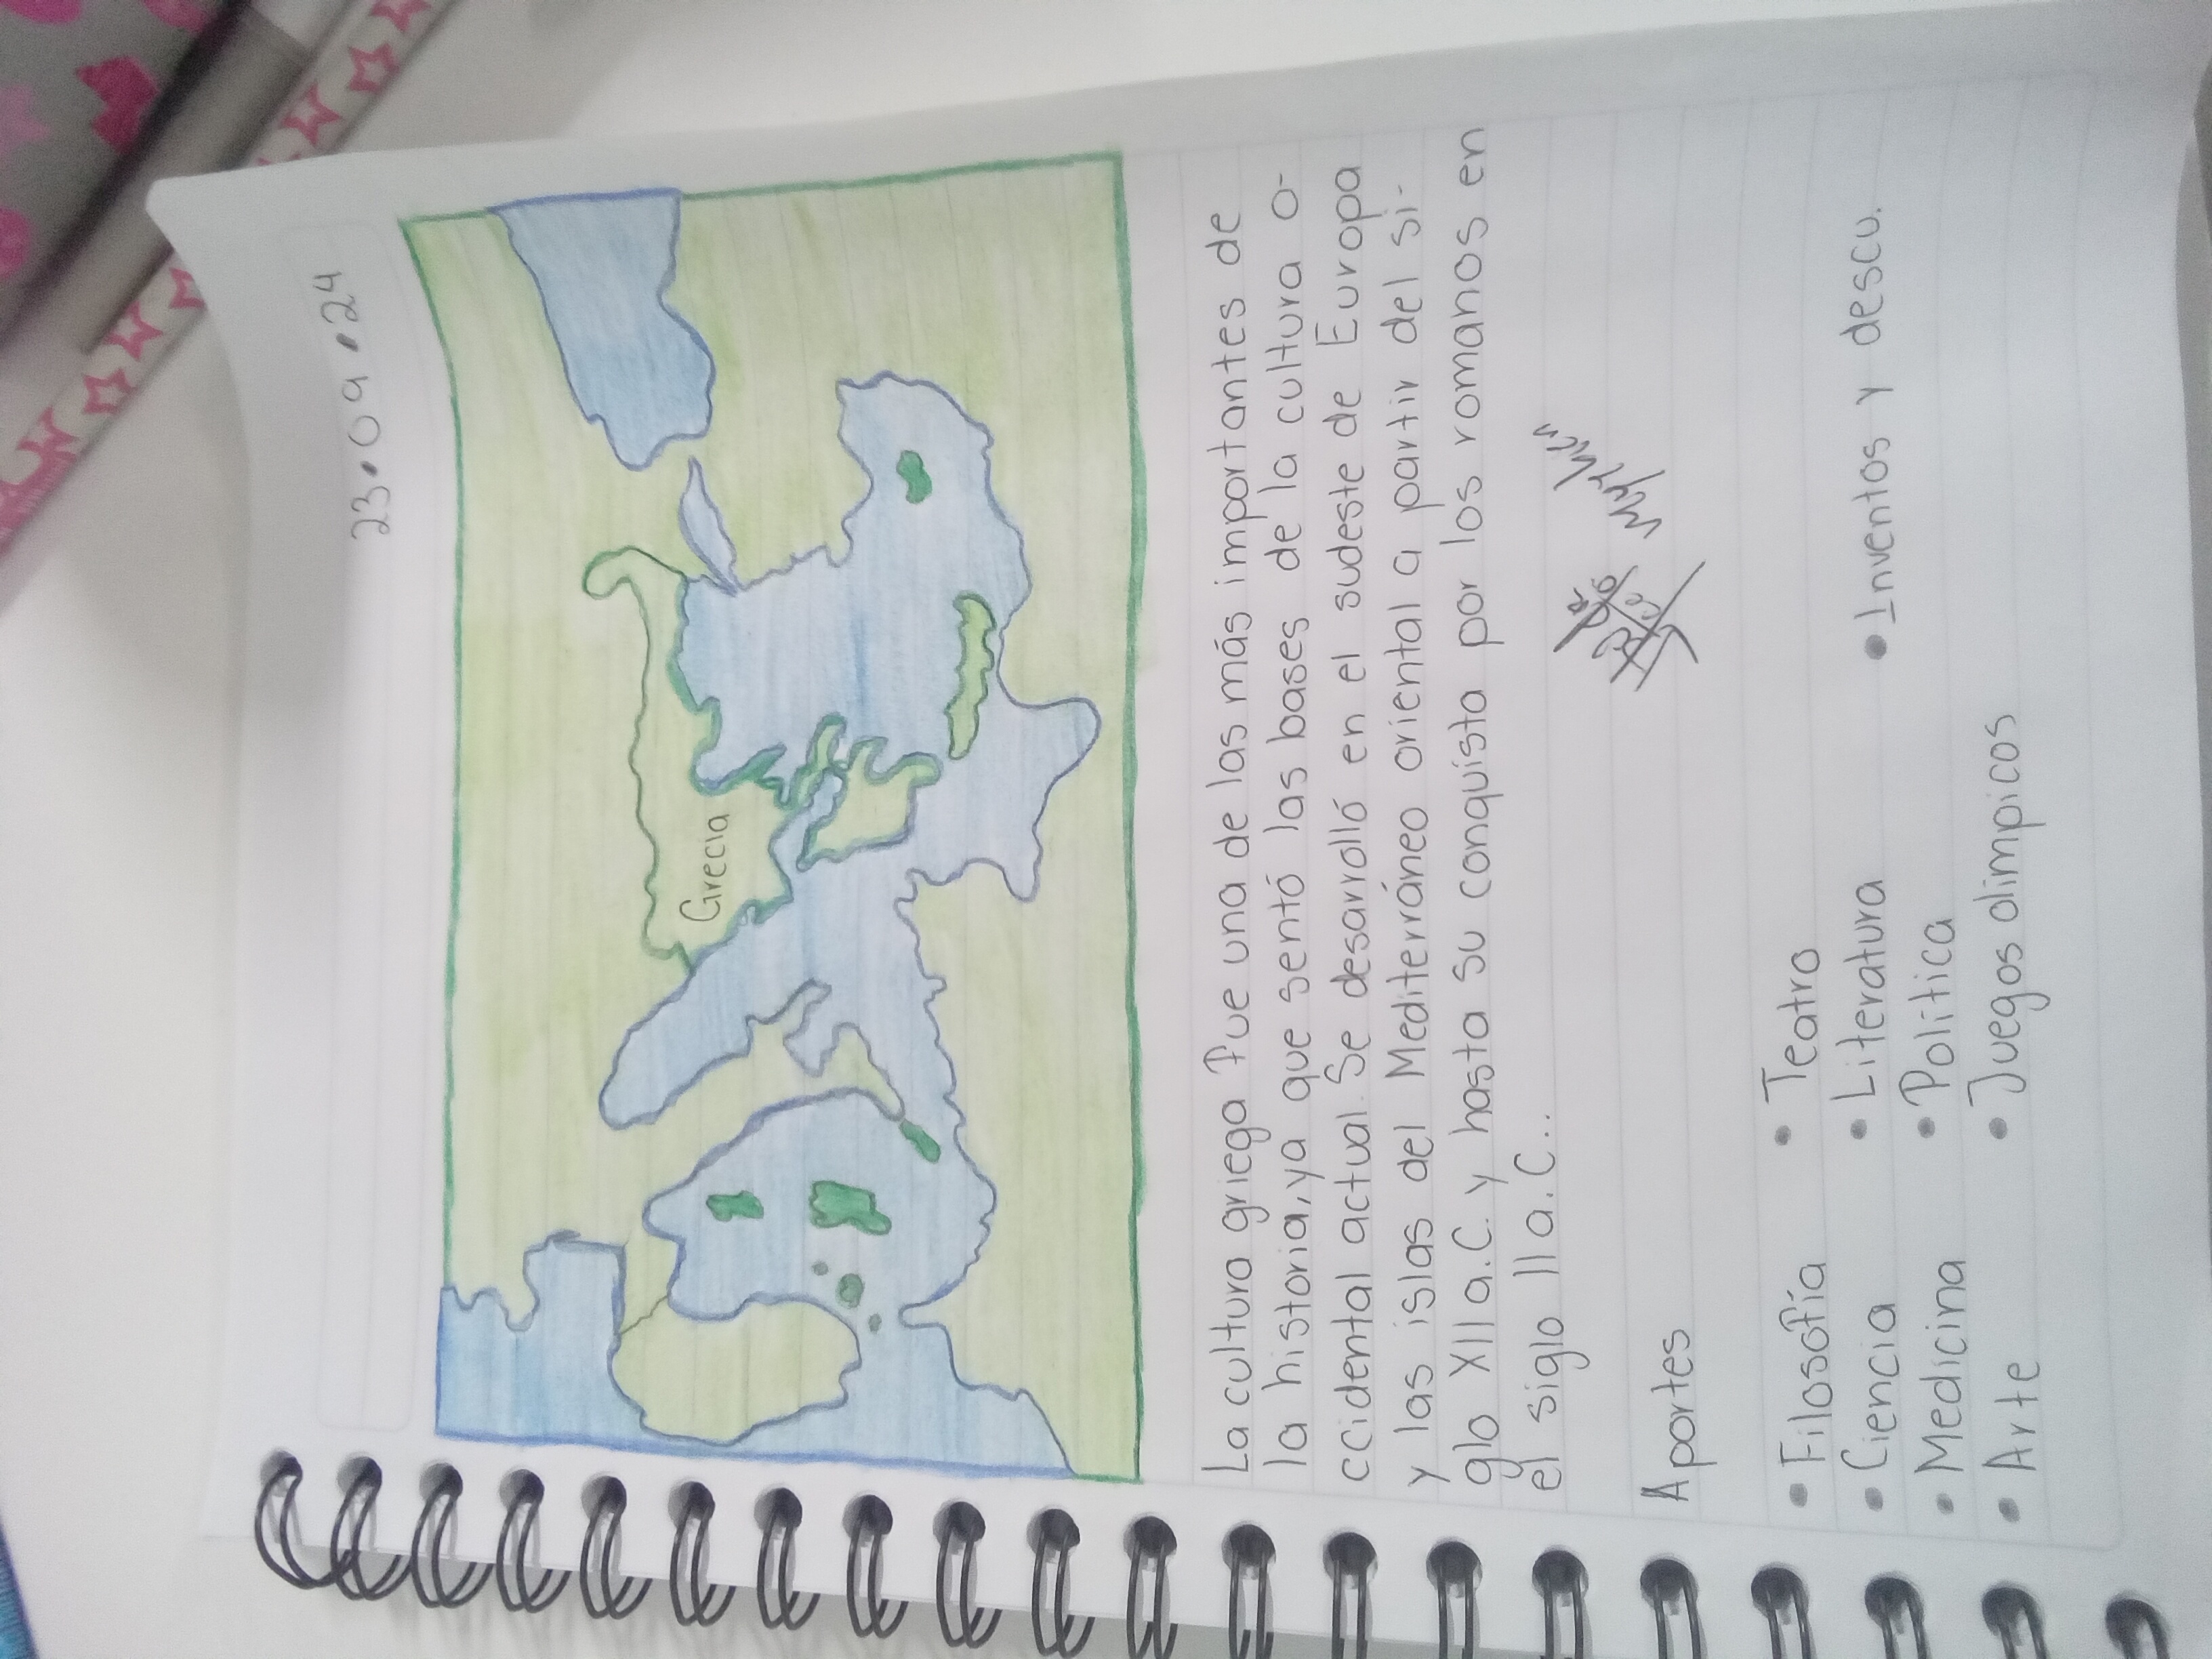 23.09.24
Grecia
La cultura griega fue una de las más importantes de
la historia, ya que sentó las bases de la cultura o-
ccidental actual. Se desarrolló en el sudeste de Europa
y las islas del Mediterráneo oriental a partir del si-
glo XII a.C. y hasta su conquista por los romanos en
el siglo II a.C...
Muy bien
Aportes
• Filosofía • Teatro
• Ciencia • Literatura • Inventos y descu.
• Medicina • Politica
• Arte • Juegos olimpicos